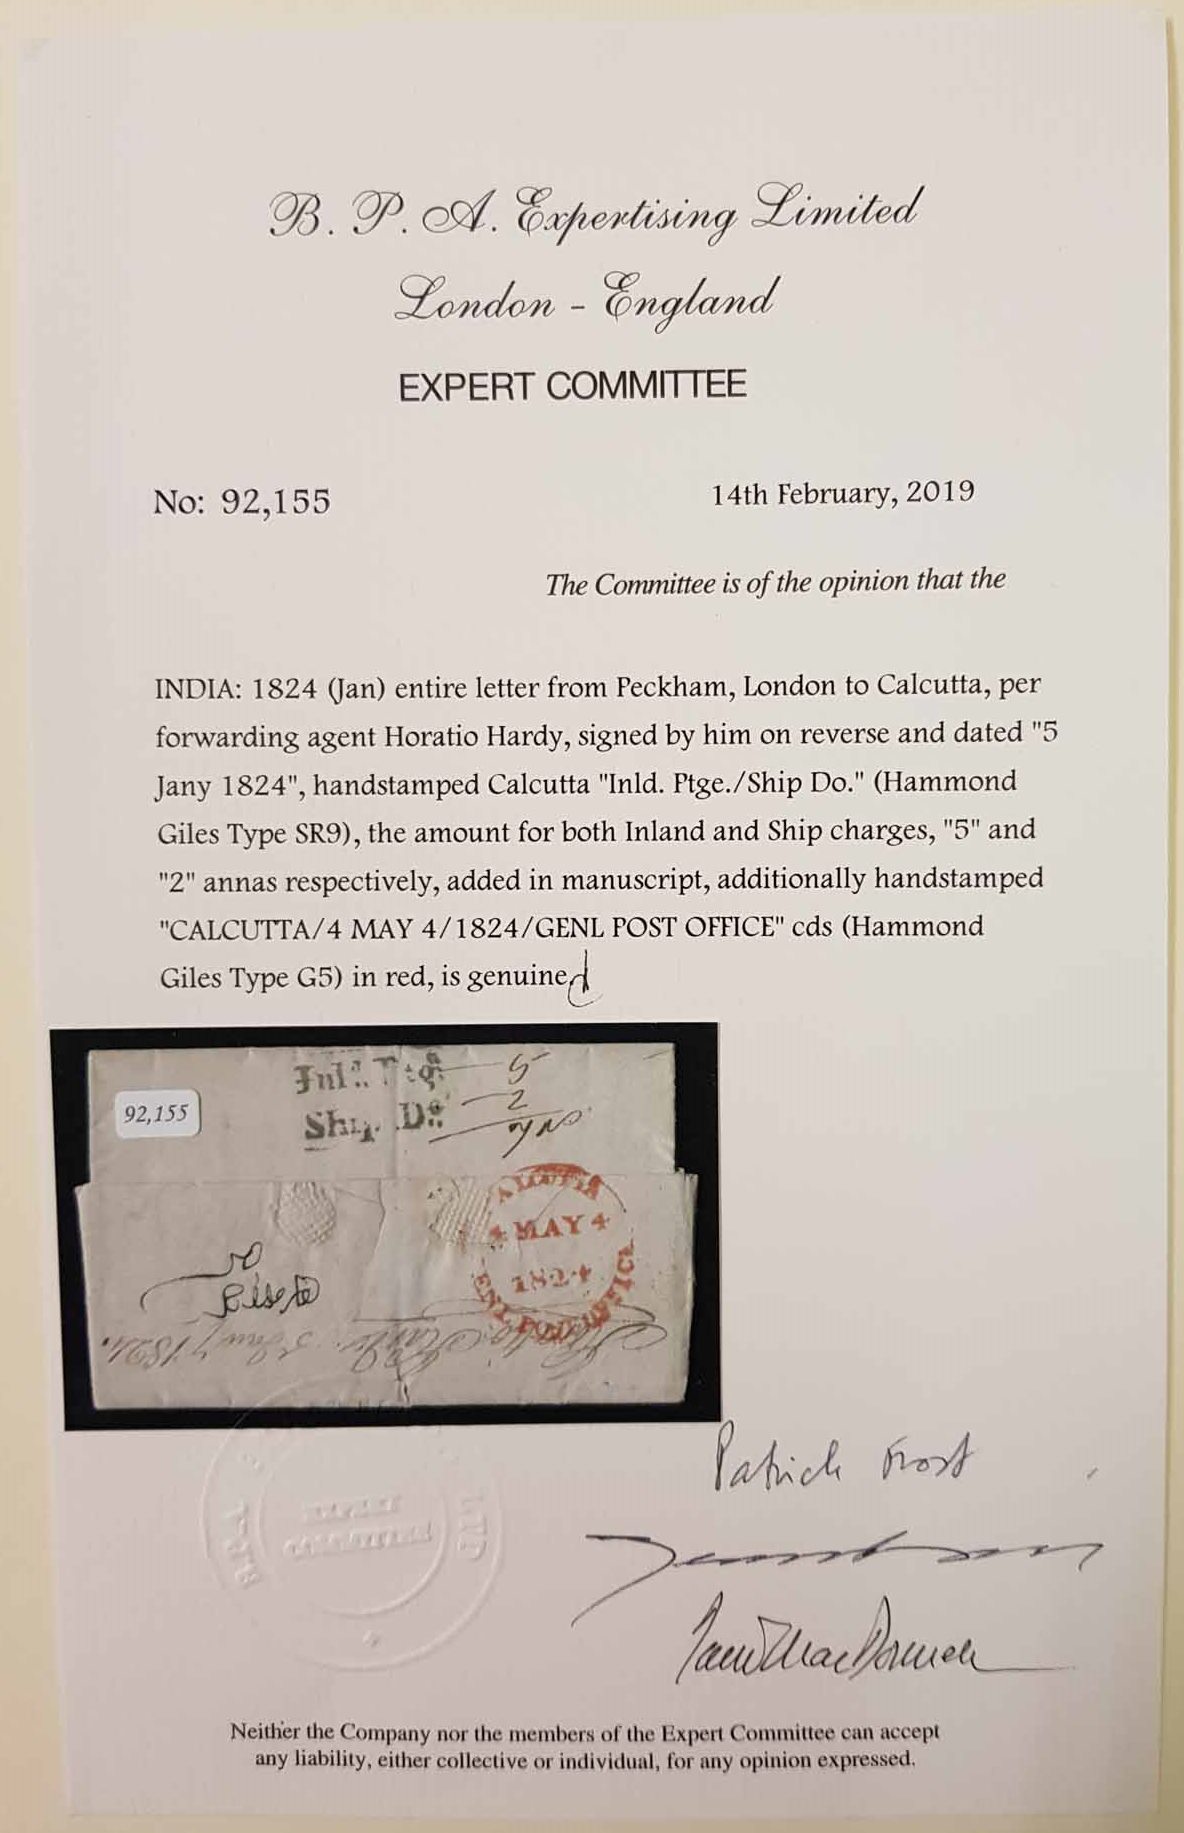 B. P. A. Expertising Limited
London - England
EXPERT COMMITTEE
No: 92,155
14th February, 2019
The Committee is of the opinion that the
INDIA: 1824 (Jan) entire letter from Peckham, London to Calcutta, per
forwarding agent Horatio Hardy, signed by him on reverse and dated "5
Jany 1824", handstamped Calcutta "Inld. Ptge./Ship Do." (Hammond
Giles Type SR9), the amount for both Inland and Ship charges, "5" and
"2" annas respectively, added in manuscript, additionally handstamped
"CALCUTTA/4 MAY 4/1824/GENL POST OFFICE" cds (Hammond
Giles Type G5) in red, is genuine
Inld. Ptge. 5
Ship. Do. 2
92,155
CALCUTTA
4 MAY 4
1824
GENL POST OFFICE
5 Jany 1824.
BPA
LTD
Patrick Frost
Neither the Company nor the members of the Expert Committee can accept
any liability, either collective or individual, for any opinion expressed.